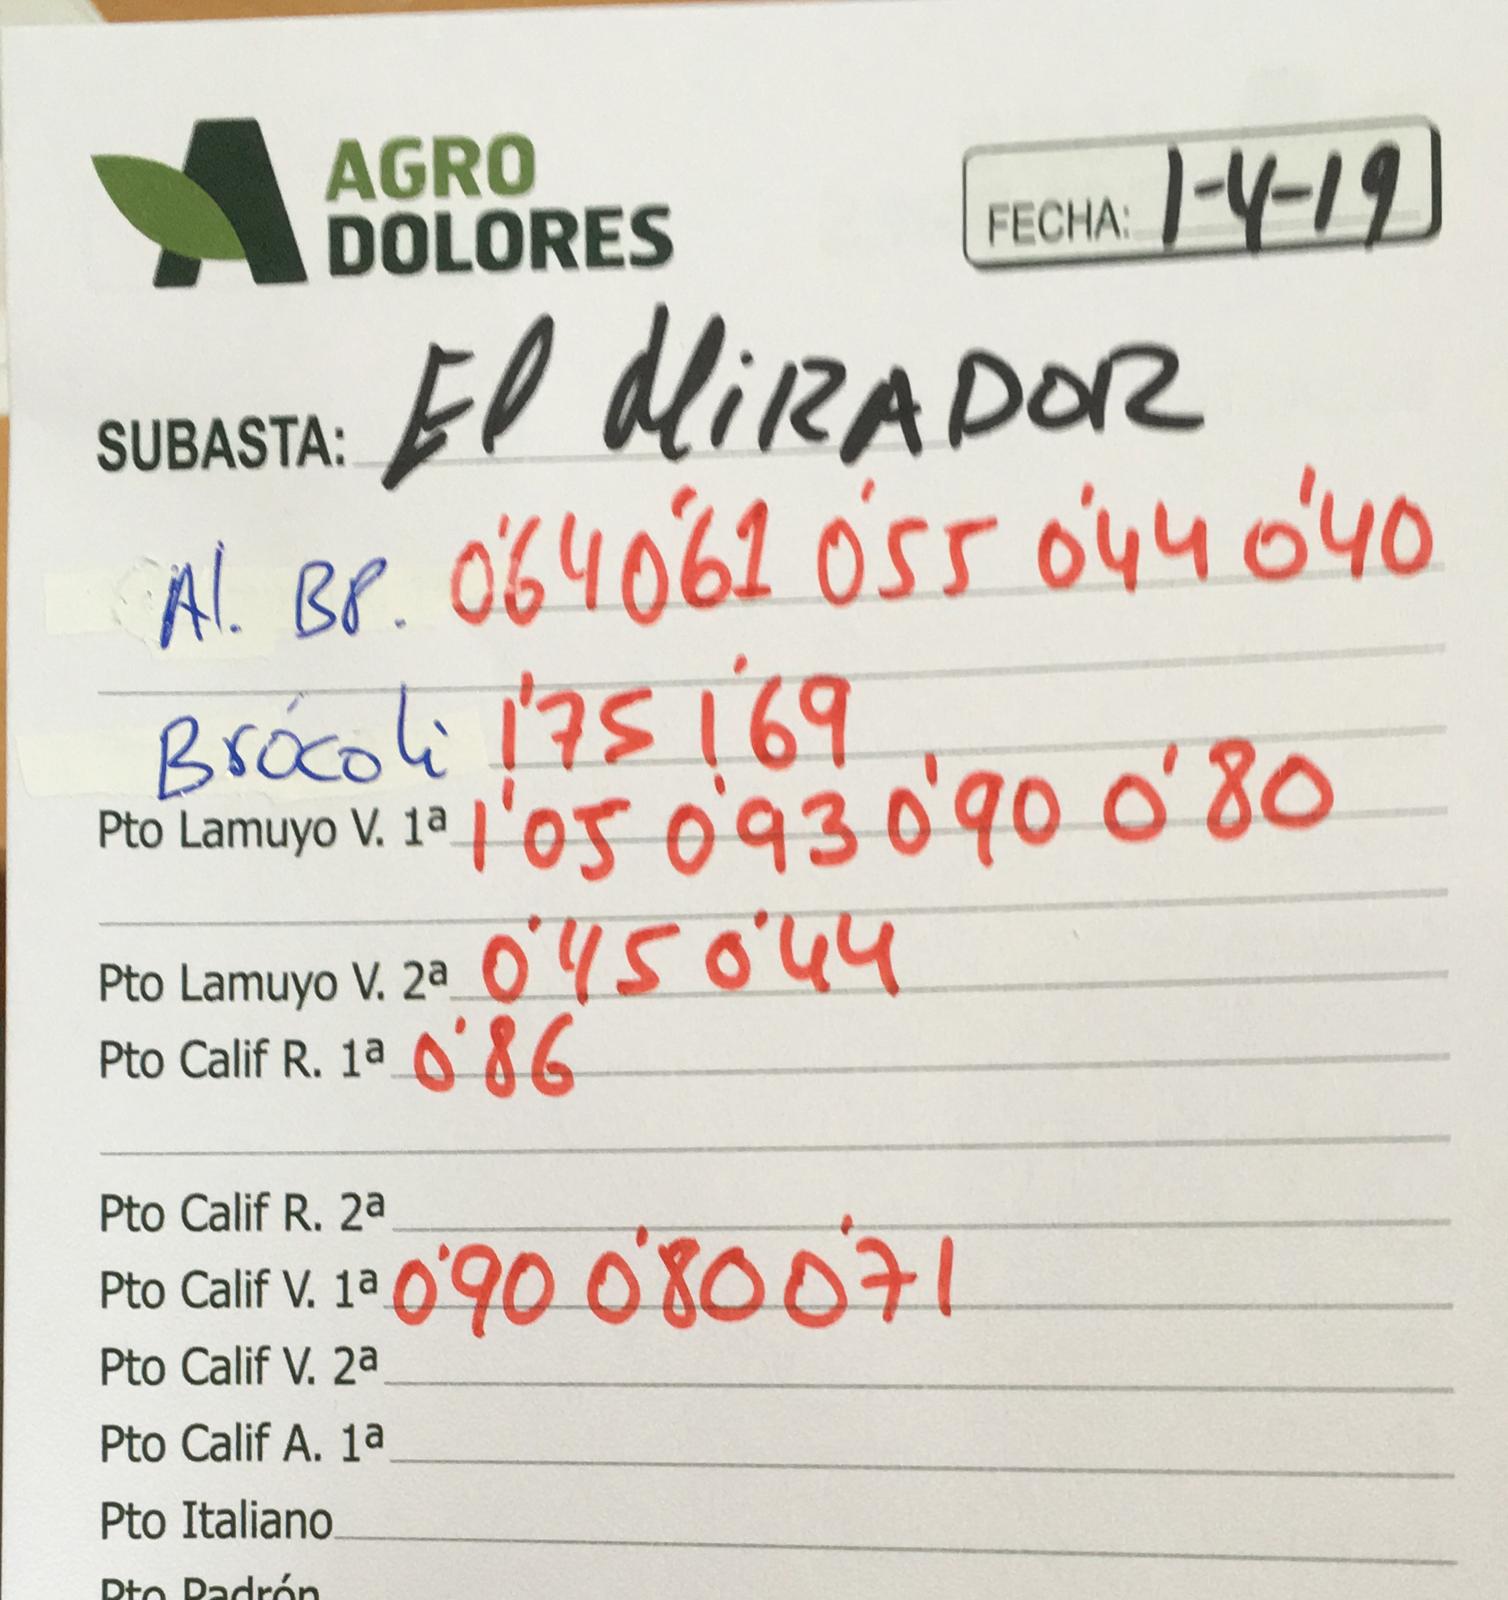 AGRO
DOLORES
FECHA: 1-4-19
SUBASTA: El MIRADOR
Al. BP. 0'64 0'61 0'55 0'44 0'40
Brócoli 1'75 1'69
Pto Lamuyo V. 1ª 1'05 0'93 0'90 0'80
Pto Lamuyo V. 2ª 0'45 0'44
Pto Calif R. 1ª 0'86
Pto Calif R. 2ª
Pto Calif V. 1ª 0'90 0'80 0'71
Pto Calif V. 2ª
Pto Calif A. 1ª
Pto Italiano
Pto Padrón